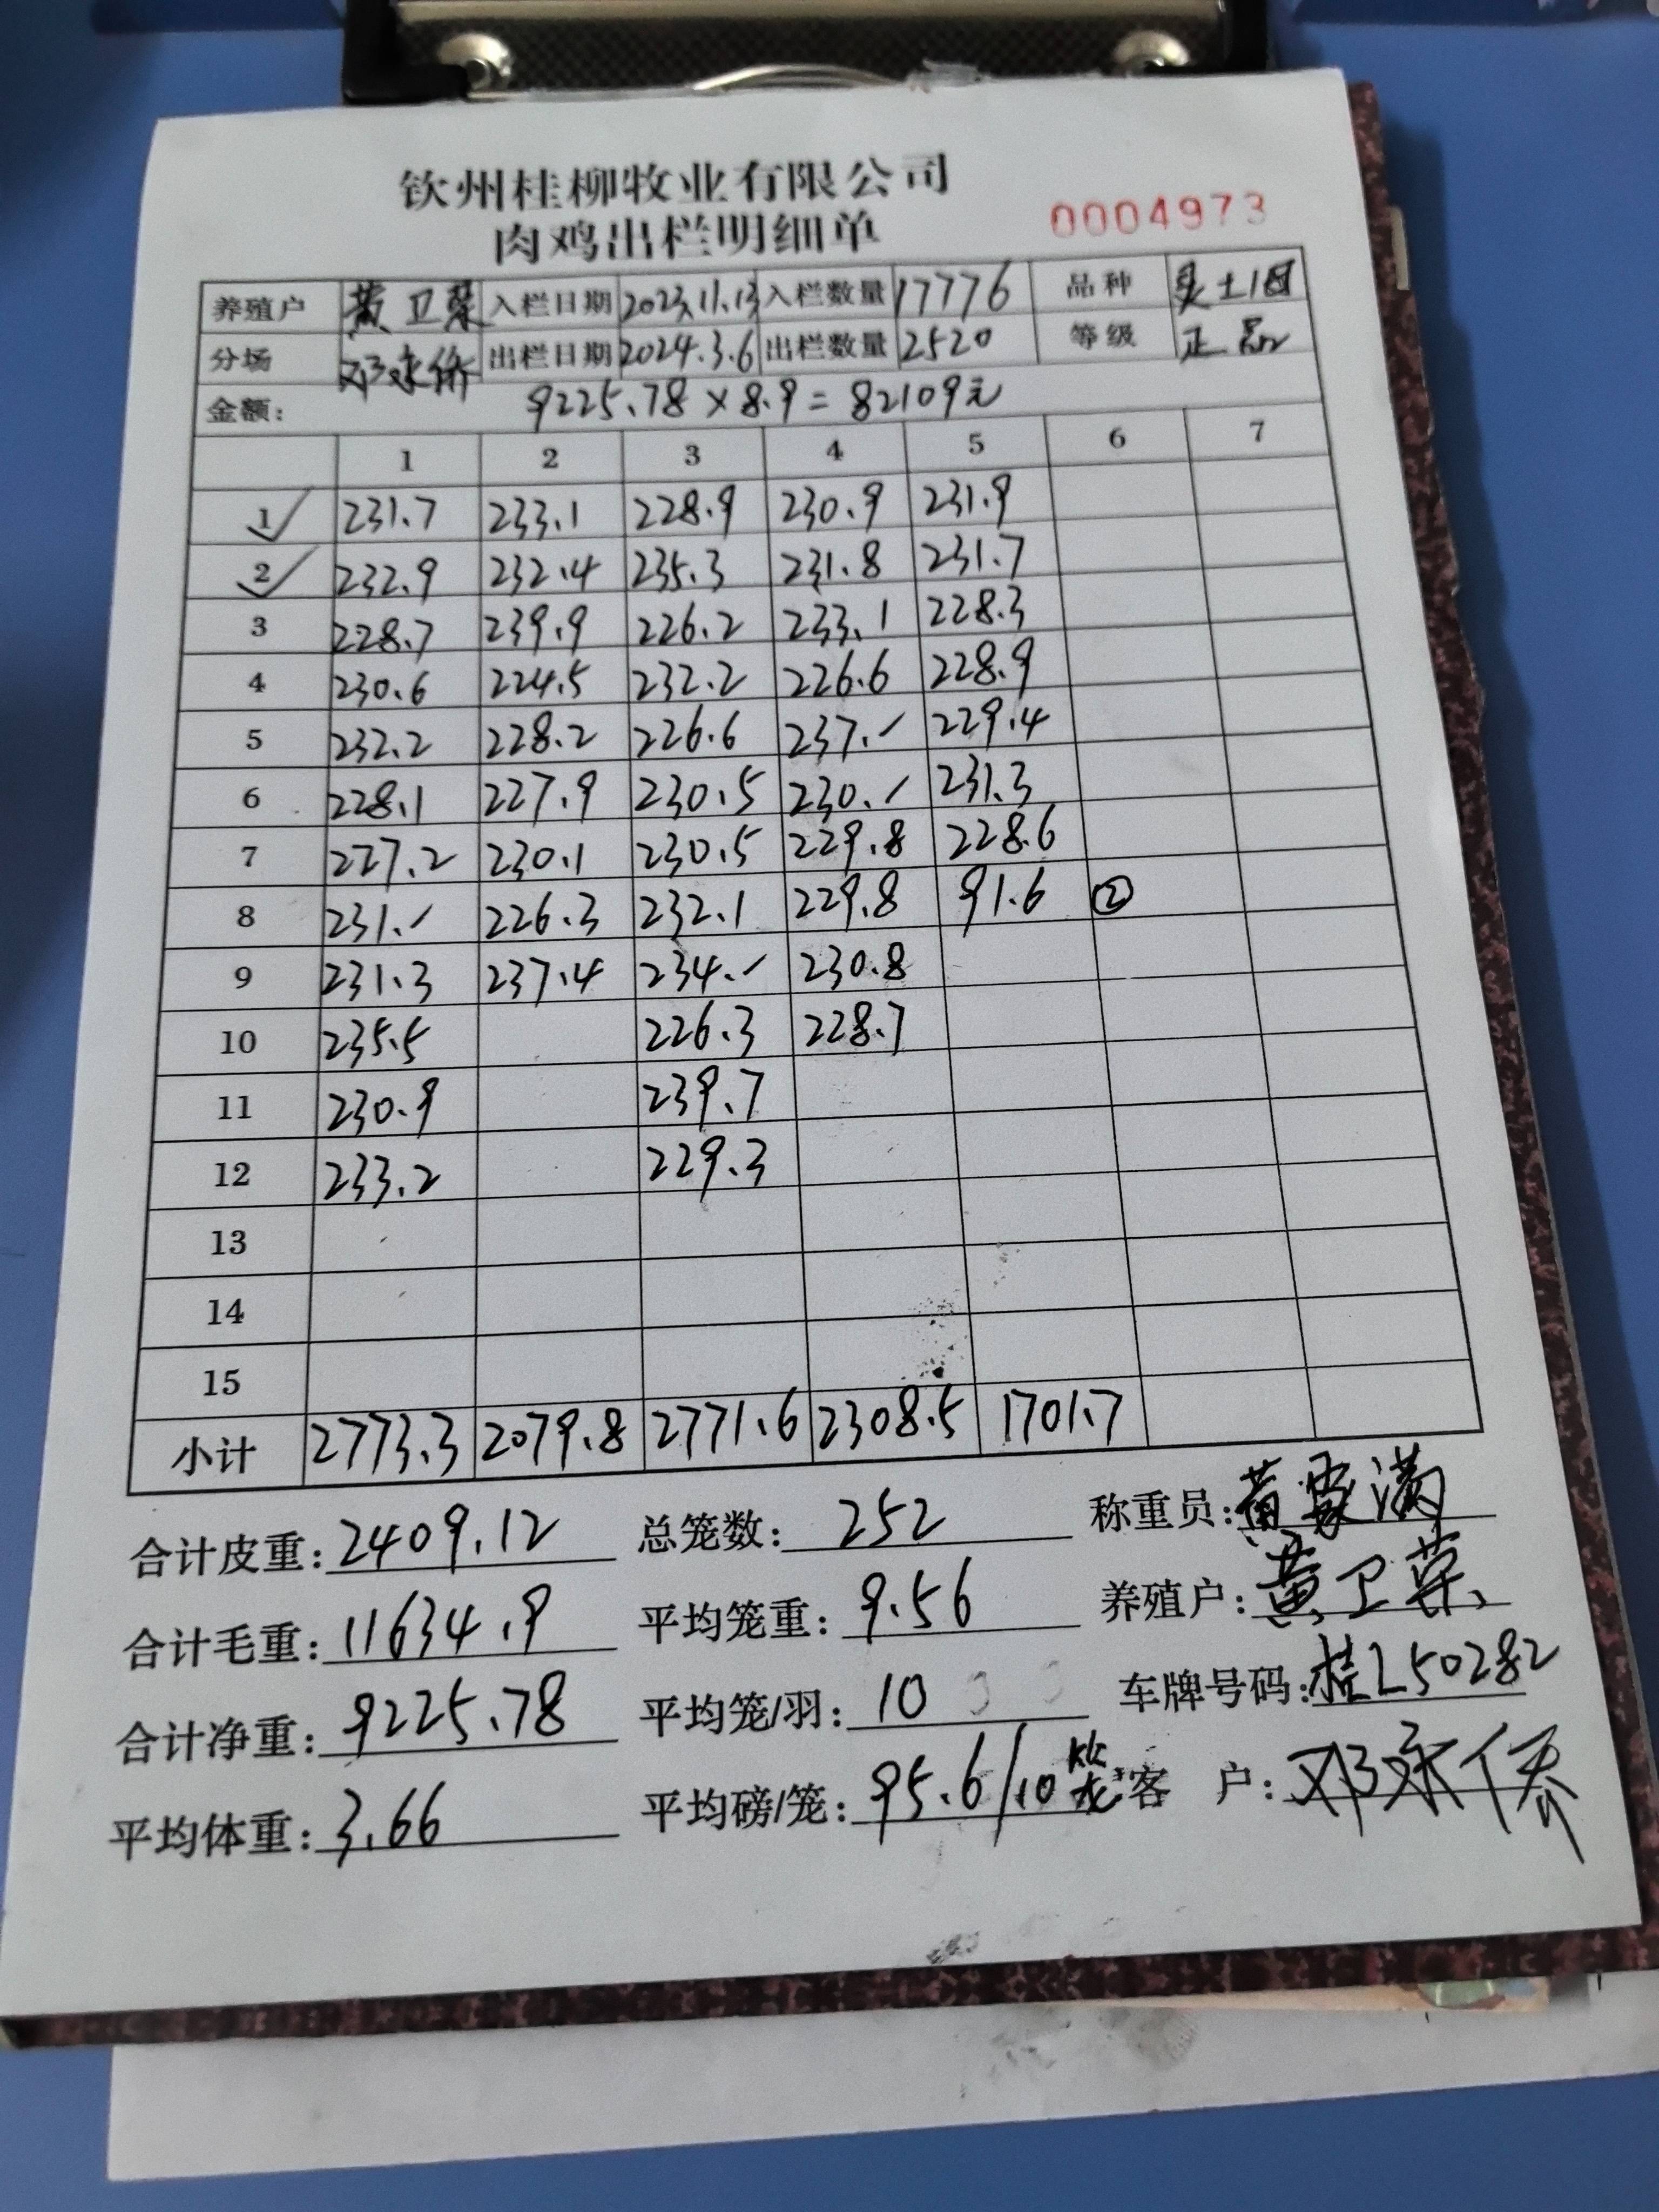 钦州桂柳牧业有限公司
肉鸡出栏明细单
0004973
养殖户 黄卫荣 入栏日期 2023.11.13 入栏数量 17776 品种 灵土1母
分场 邓永侨 出栏日期 2024.3.6 出栏数量 2520 等级 正品
金额: 9225.78×8.9=82109元
1 2 3 4 5 6 7
1 231.7 233.1 228.9 230.9 231.9
2 232.9 232.4 235.3 231.8 231.7
3 228.7 239.9 226.2 233.1 228.3
4 230.6 224.5 232.2 226.6 228.9
5 232.2 228.2 226.6 237.- 229.4
6 228.1 227.9 230.5 230.- 231.3
7 227.2 230.1 230.5 229.8 228.6
8 231.- 226.3 232.1 229.8 91.6 ②
9 231.3 237.4 234.- 230.8
10 235.5 226.3 228.7
11 230.9 239.7
12 233.2 229.3
13
14
15
小计 2773.3 2079.8 2771.6 2308.5 1701.7
合计皮重: 2409.12 总笼数: 252 称重员: 黄家满
合计毛重: 11634.9 平均笼重: 9.56 养殖户: 黄卫荣
合计净重: 9225.78 平均笼/羽: 10 车牌号码: 桂L50282
平均体重: 3.66 平均磅/笼: 95.6/10笼 客 户: 邓永侨